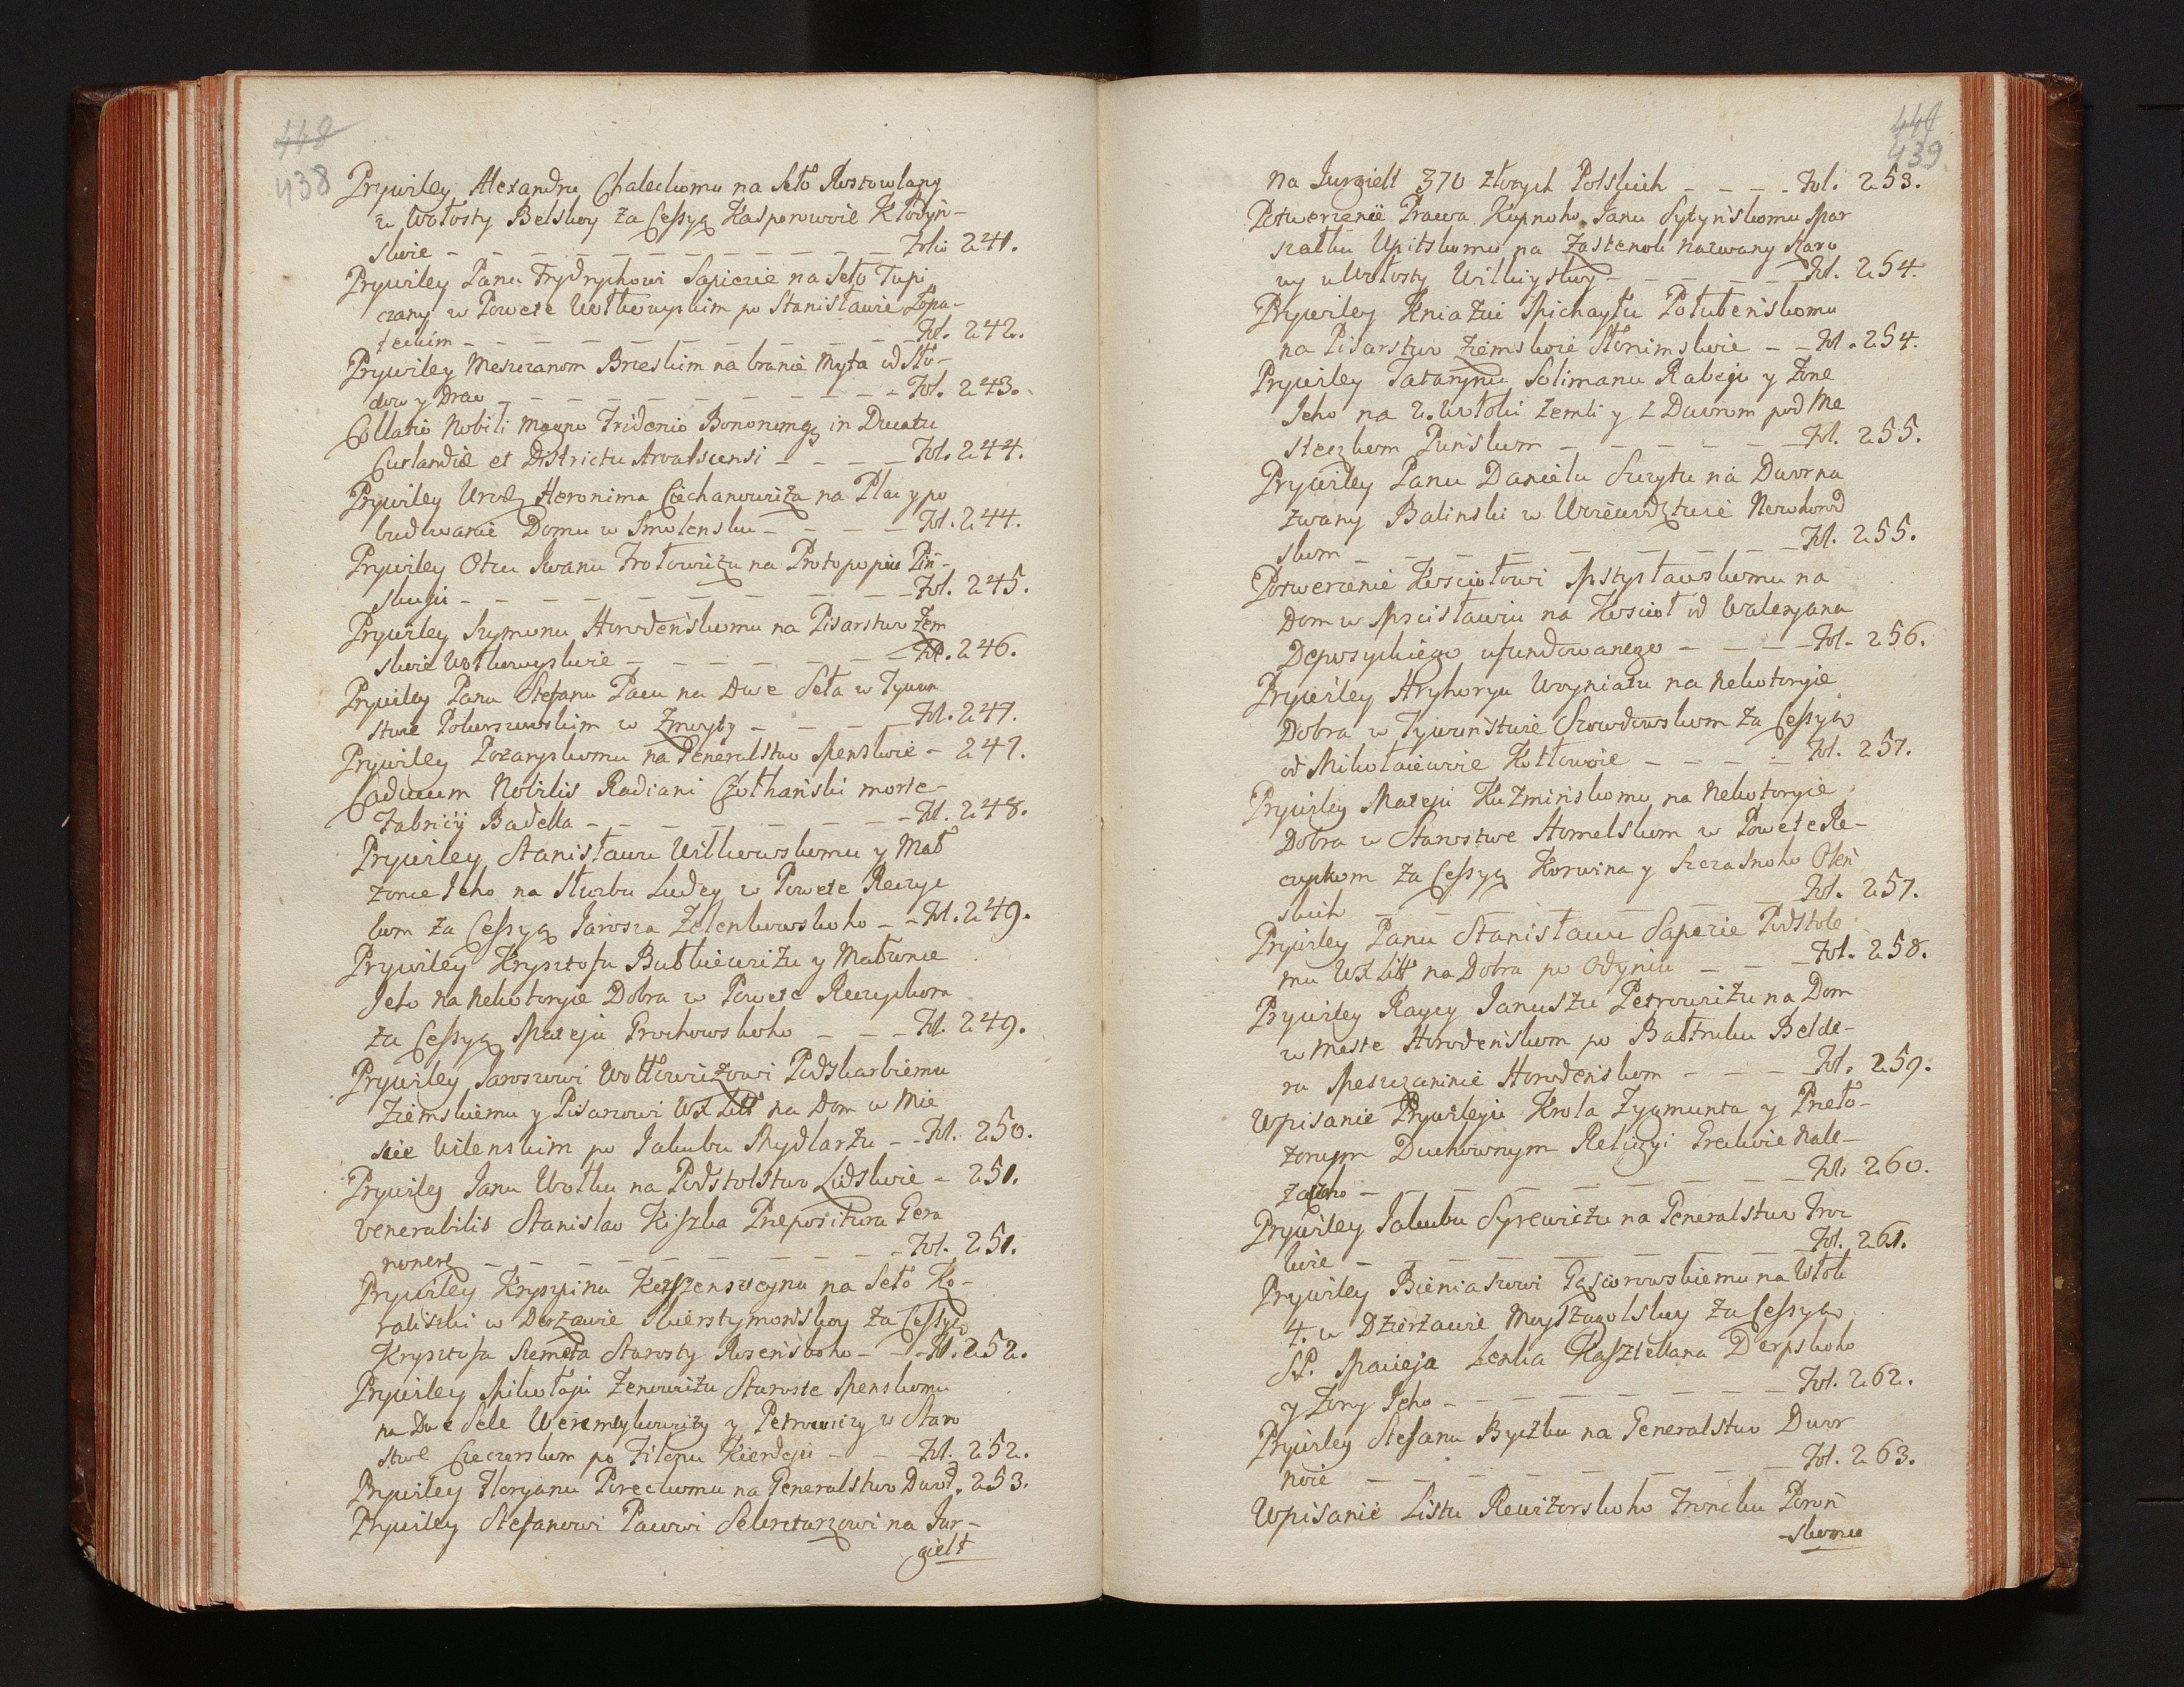 448
438
Prywiley Alexandru Chaleckomu na Seło Rostowlany
z Wołosty Belskoy za Cessyą Kasperowoie Kłodyń-
skoie - - - - - - - - - Folio 241.
Prywiley Panu Frydrychowi Sapiezie na Seło Tupi
czany w Powete Wołkowyskim po Stanisławie Łopa-
teckim - - - - - - - - - Fol. 242.
Prywiley Meszczanom Brzeskim na branie Myta od Sło-
dow y Drew - - - - - - - - - Fol. 243.
Collatio Nobili Magno Fridenio Bononi in Ducatu
Curlandiæ et Districtu Arvalscensi - - - - Fol. 244.
Prywiley Urodz Heronima Ciechanowiża na Plac y po
budwanie Domu w Smolensku - - - - Fol. 244.
Prywiley Otcu Iwanu Frołowiżu na Protopopiu Piń-
skuju - - - - - - - - - Fol. 245.
Prywiley Szymonu Horodeńskomu na Pisarstwo Zem
skoie Wołkowyskoie - - - - - - Fol. 246.
Prywiley Panu Stefanu Pacu na Dwe Seła w Tywun
stwe Pojurszewskim w Żmuydy - - - - Fol. 247.
Prywiley Pożaryskomu na Generalstwo Menskoie - 247.
Caducum Nobilis Radiani Czołhański morte
Fabricij Badella - - - - - - - Fol. 248.
Prywiley Stanisławu Wilkowskomu y Mał
żonce Jeho na Służbu Ludey w Powete Reczyc
kom za Cessyą Jarosza Zelenkowskoho - - Fol. 249.
Prywiley Krysztofu Butkiewiżu y Małżonce
Jeho na nekotoryie Dobra w Powete Reczyckom
za Cessyą Mateju Grochowskoho - - - Fol. 249.
Prywiley Jaroszowi Wołłowiżowi Podskarbiemu
Ziemskiemu y Pisarzowi WX Litt na Dom w Mie
scie Wilenskim po Jakubu Mydlarżu - - Fol. 250.
Prywiley Janu Wołku na Podstolstwo Lidskoie - 251.
Venerabilis Stanislao Kiszka Præpositura Gera
nonen - - - - - - - - - Fol. 251.
Prywiley Kryspinu Kerszensztejnu na Seło Ko-
raliszki w Derżawie Skierstymońskoy za Cessyeo
Krysztofa Szemeta Starosty Rosieńskoho - - Fol. 252.
Prywiley Mikołaju Zenowiżu Staroste Menskomu
na Dwe Sele Weremeykowiży y Petrowiczy w Staro
stwe Czeczerskom po Filonu Kierdeju - - Fol. 252.
Prywiley Floryanu Poreckomu na Generalstwo Dwoř. 253.
Prywiley Stefanowi Pacowi Sekretarzowi na Jur-
gielt
449
439
na Jurgielt 370 złotych Polskich - - - - Fol. 253.
Potwerżenie Prawa Kupnoho Janu Sytyńskomu Mar
szałku Upitskomu na Zastenok nazwany Karo
wy u Wołosty Wilkiyskoy - - - - - Fol. 254.
Prywiley Kniaziu Michayłu Połubenskomu
na Pisarstwo Ziemskoie Słonimskoie - - Fol. 254.
Prywiley Tatarynu Solimanu Rabeju y Zone
Jeho na 2. Włoki Zemli y z Dworom pod Me
steczkom Punskom - - - - - - Fol. 255.
Prywiley Panu Danielu Suzytu na Dwor na
zwany Balinski w Woiewodztwie Nowhorod
skom - - - - - - - - - Fol. 255.
Potwerżenie Kosciołowi Mstysławskomu na
Dom w Mscisławiu na Kosciół od Waleryana
Deposyckiego ufundowanego - - - - Fol. 256.
Prywiley Hryhoryu Woyniatu na nekotoryie
Dobra w Tywunstwie Szowdowskom za Cessyeo
od Mikołaiewoie Kotłowoie - - - - - Fol. 257.
Prywiley Mateju Kuzmińskomu na nekotoryie
Dobra w Starostwe Homelskom w Powete Re-
czyckom za Cessyą Korwina y Szczasnoho Oleń
skich - - - - - - - - - Fol. 257.
Prywiley Panu Stanisławu Sapezie Podstole
mu WX Litt na Dobra po Odyńcu - - - Fol. 258.
Prywiley Raycy Januszu Petrowiżu na Dom
w Meste Horodeńskom po Bałtruku Belde-
ru Meszczaninie Horodenskom - - - - Fol. 259.
Wpisanie Prywileju Krola Zygmunta y Preło-
żonym Duchownym Religyi Greckoie nale-
żaczoho - - - - - - - - - Fol. 260.
Prywiley Jakubu Syrewiżu na Generalstwo Troc
koie - - - - - - - - - Fol. 261.
Prywiley Bieniaszowi Gąsiorowskiemu na Włok
4. w Dzierżawie Moyszagolskoy za Cessyeo
SP. Macieja Leska Kasztellana Derpskoho
y Zony Jeho - - - - - - - - Fol. 262.
Prywiley Stefanu Byczku na Generalstwo Dwor
noie - - - - - - - - - Fol. 263.
Wpisanie Listu Rewizorskoho Froncku Poroń
-skomu